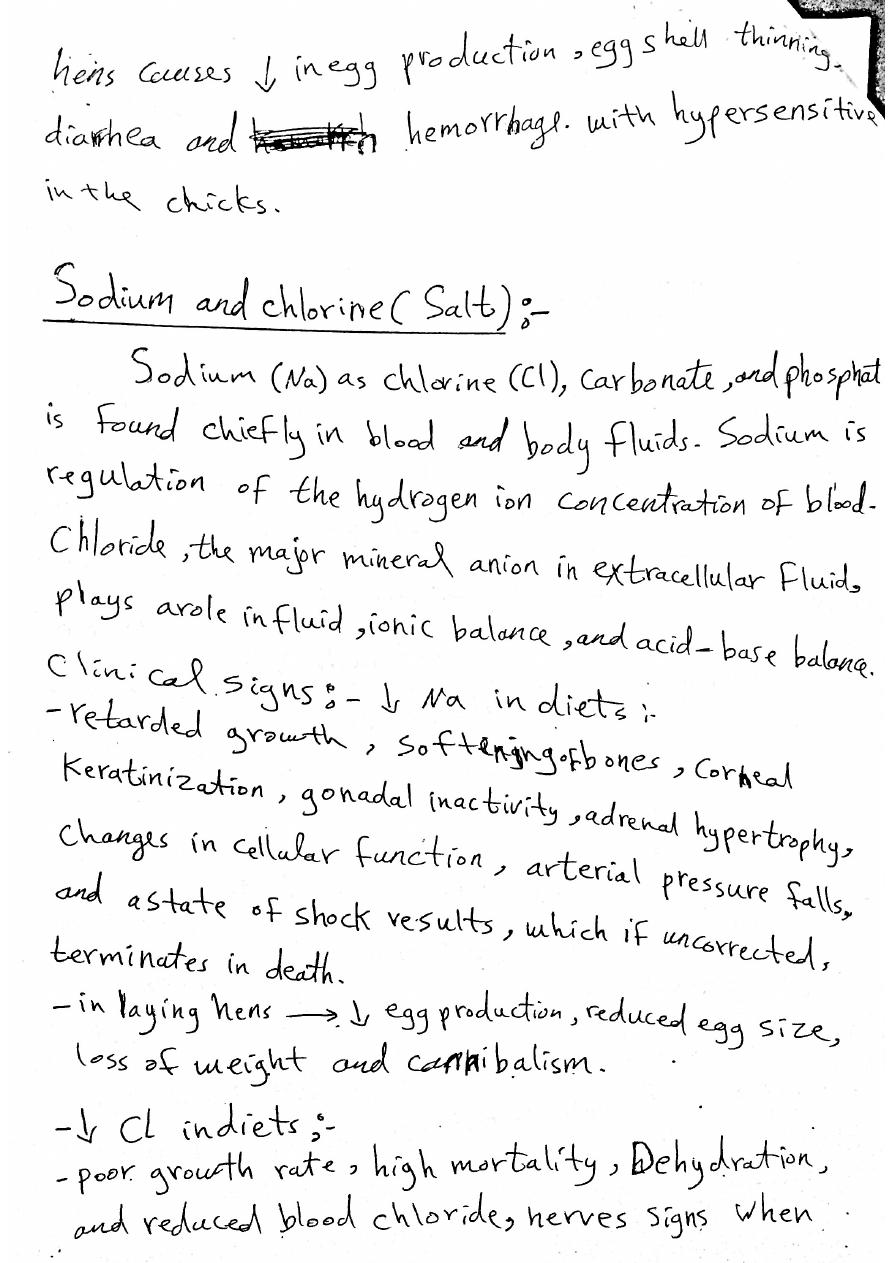 hens causes ↓ in egg production, egg shell thinning.
diarrhea and hemorrhage. with hypersensitive
in the chicks.
Sodium and chlorine (Salt) :-
Sodium (Na) as chlorine (Cl), Carbonate, and phosphat
is found chiefly in blood and body fluids. Sodium is
regulation of the hydrogen ion concentration of blood.
Chloride, the major mineral anion in extracellular Fluid,
plays a role in fluid, ionic balance, and acid-base balance.
Clinical signs :- ↓ Na in diets :-
- retarded growth, softening of bones, Corneal
Keratinization, gonadal inactivity, adrenal hypertrophy,
Changes in cellular function, arterial pressure falls,
and a state of shock results, which if uncorrected,
terminates in death.
- in laying hens → ↓ egg production, reduced egg size,
loss of weight and cannibalism.
- ↓ CL in diets :-
- poor growth rate, high mortality, Dehydration,
and reduced blood chloride, nerves signs when